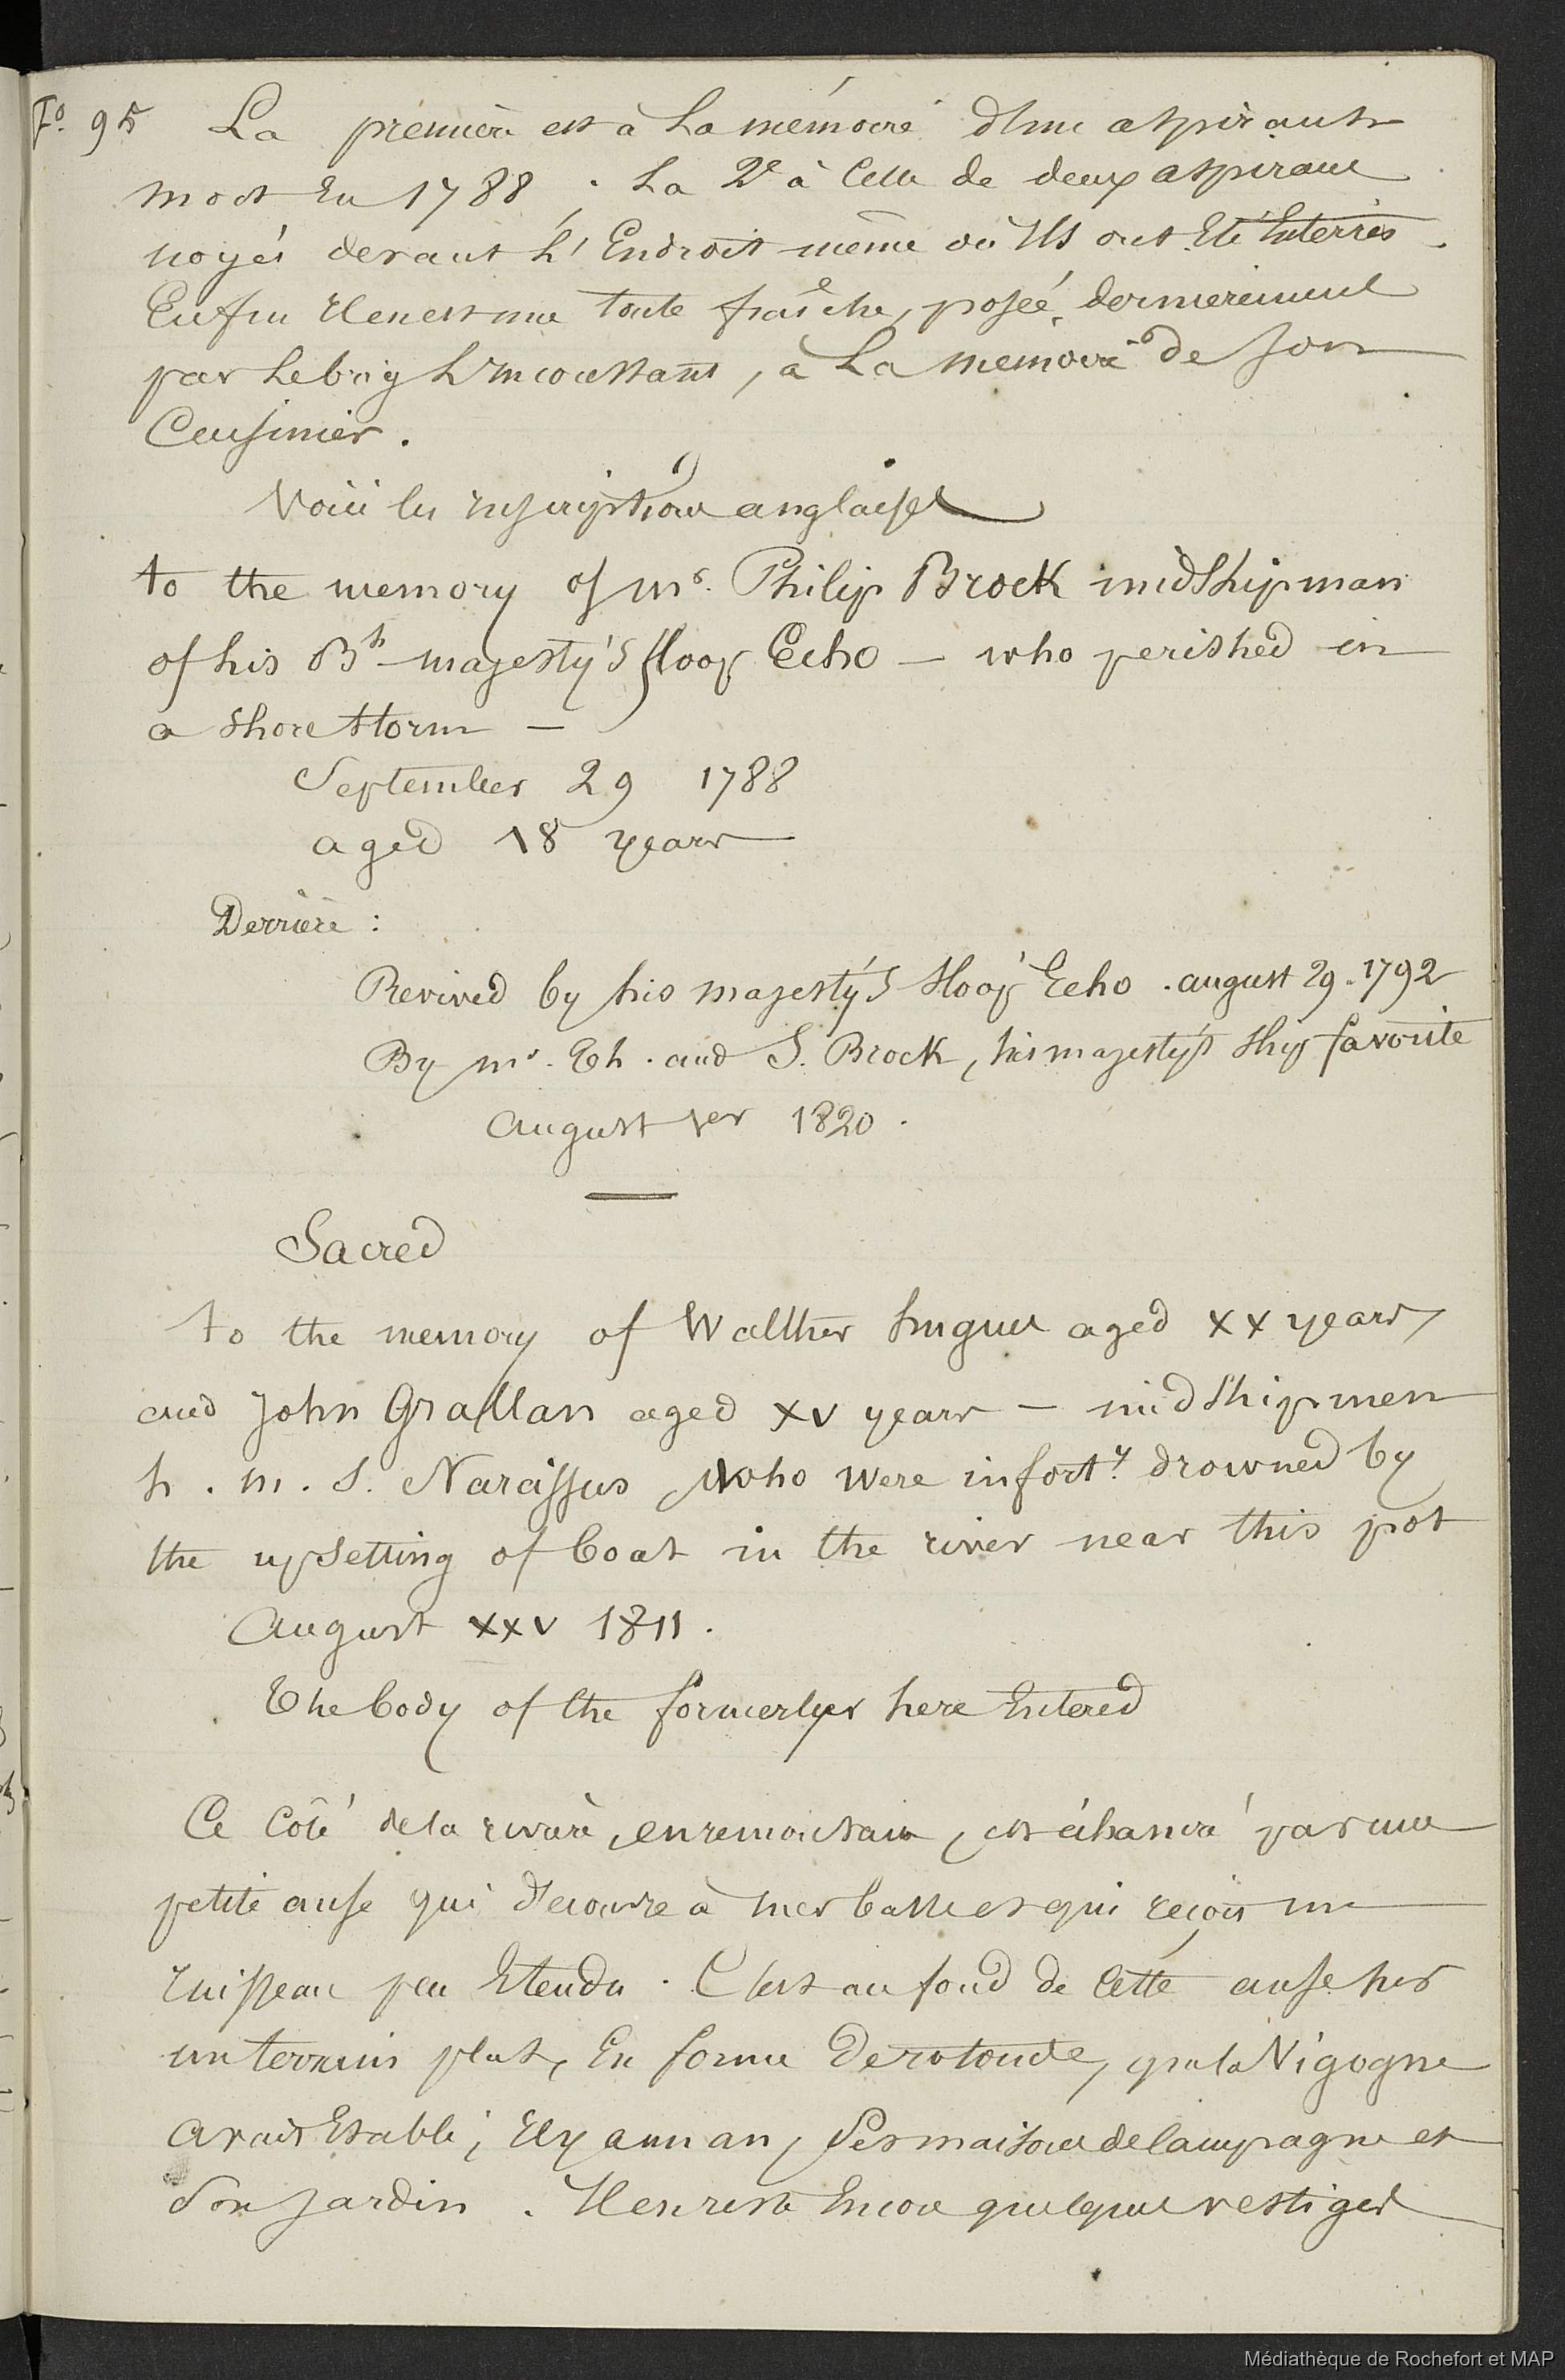 Fo. 95 La première est à La mémoire d'un aspirant
mort En 1788 . La 2e à Celle de deux aspirans
noyés devant L'Endroit même où Ils ont Eté Enterrés.
Enfin Il en est une toute fraîche, posée, dernierement
par Le brig L'inconstant, à La mémoire de Son
Cuisinier.
Voici les inscriptions anglaises
to the memory of mr. Philip Brock midshipman
of his Bh majesty's Sloop Echo — who perished in
a shore storm —
September 29 1788
aged 18 years
Derrière :
Revived by his majesty's Sloop Echo . august 29 . 1792
By mr. Th. and S. Brock, his majesty's Ship favorite
August 1er 1820 .
Sacred
to the memory of Walther aged xx years,
and John Grallan aged xv years — midshipmen
h . m . S. Narcissus who were inforty. drowned by
the upsetting of boat in the river near this pot
August xxv 1811 .
The body of the former lyes here Entered
Ce Côté de la rivière, en remontant, est échancré par une
petite anse qui découvre à mer basse et qui reçoit un
ruisseau peu Etendu . C'est au fond de cette anse sur
un terrain plat, En forme de rotonde, que la Vigogne
avait Etabli, Il y a un an, Ses maisons de Campagne et
Son jardin . Il en reste Encore quelques vestiges
Médiathèque de Rochefort et MAP